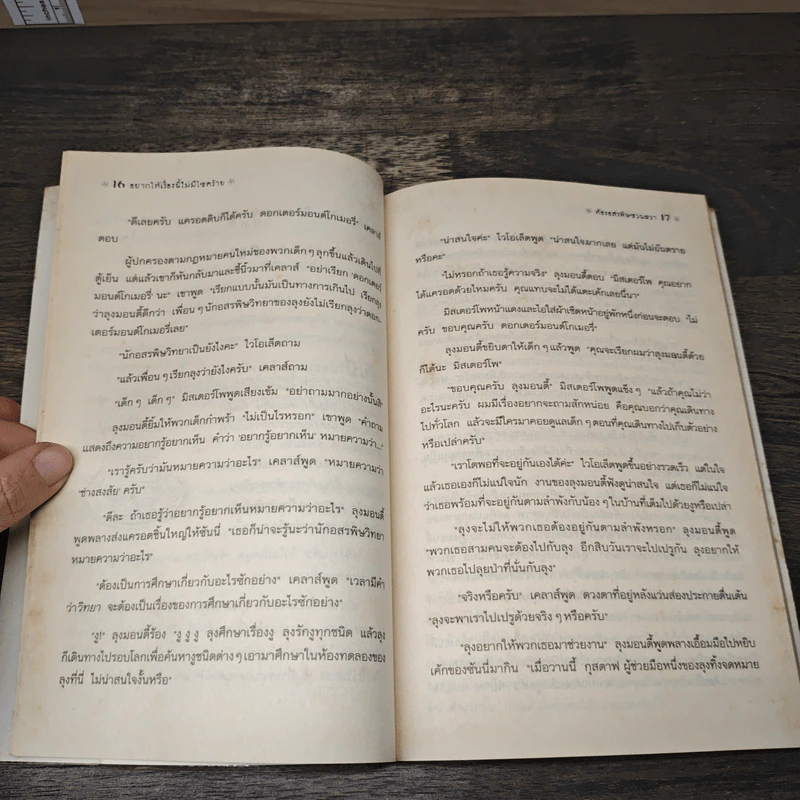 16 อยากให้เรื่องนี้ไม่มีโชคร้าย
"ดีเลยครับ แครอตดิบก็ได้ครับ ดอกเตอร์มอนต์โกเมอรี่" เคลาส์
ตอบ
ผู้ปกครองตามกฎหมายคนใหม่ของพวกเด็กๆ ลุกขึ้นแล้วเดินไปที่
ตู้เย็น แต่แล้วเขาก็หันกลับมาและชี้นิ้วมาที่เคลาส์ "อย่าเรียก 'ดอกเตอร์
มอนต์โกเมอรี่' นะ" เขาพูด "เรียกแบบนั้นมันเป็นทางการเกินไป เรียกลุง
ว่าลุงมอนตี้ดีกว่า เพื่อนๆ นักอสรพิษวิทยาของลุงยังไม่เรียกลุงว่าดอก-
เตอร์มอนต์โกเมอรี่เลย"
"นักอสรพิษวิทยาเป็นยังไงคะ" ไวโอเล็ตถาม
"แล้วเพื่อนๆ เรียกลุงว่ายังไงครับ" เคลาส์ถาม
"เด็กๆ เด็กๆ" มิสเตอร์โพพูดเสียงเข้ม "อย่าถามมากอย่างนั้นสิ"
ลุงมอนตี้ยิ้มให้พวกเด็กกำพร้า "ไม่เป็นไรหรอก" เขาพูด "คำถาม
แสดงถึงความอยากรู้อยากเห็น คำว่า 'อยากรู้อยากเห็น' หมายความว่า..."
"เรารู้ครับว่ามันหมายความว่าอะไร" เคลาส์พูด "หมายความว่า
'ช่างสงสัย' ครับ"
"ดีละ ถ้าเธอรู้ว่าอยากรู้อยากเห็นหมายความว่าอะไร" ลุงมอนตี้
พูดพลางส่งแครอตชิ้นใหญ่ให้ซันนี่ "เธอก็น่าจะรู้นะว่านักอสรพิษวิทยา
หมายความว่าอะไร"
"ต้องเป็นการศึกษาเกี่ยวกับอะไรซักอย่าง" เคลาส์พูด "เวลามีคำ
ว่าวิทยา จะต้องเป็นเรื่องของการศึกษาเกี่ยวกับอะไรซักอย่าง"
"งู!" ลุงมอนตี้ร้อง "งู งู งู ลุงศึกษาเรื่องงู ลุงรักงูทุกชนิด แล้วลุง
ก็เดินทางไปรอบโลกเพื่อค้นหางูชนิดต่างๆ เอามาศึกษาในห้องทดลองของ
ลุงที่นี่ ไม่น่าสนใจงั้นหรือ"
ห้องอสรพิษชวนผวา 17
"น่าสนใจค่ะ" ไวโอเล็ตพูด "น่าสนใจมากเลย แต่มันไม่อันตราย
หรือคะ"
"ไม่หรอกถ้าเธอรู้ความจริง" ลุงมอนตี้ตอบ "มิสเตอร์โพ คุณอยาก
ได้แครอตด้วยไหมครับ คุณแทบจะไม่ได้แตะเค้กเลยนี่นา"
มิสเตอร์โพหน้าแดงและไอใส่ผ้าเช็ดหน้าอยู่พักหนึ่งก่อนจะตอบ "ไม่
ครับ ขอบคุณครับ ดอกเตอร์มอนต์โกเมอรี่"
ลุงมอนตี้ขยิบตาให้เด็กๆ แล้วพูด "คุณจะเรียกผมว่าลุงมอนตี้ด้วย
ก็ได้นะ มิสเตอร์โพ"
"ขอบคุณครับ ลุงมอนตี้" มิสเตอร์โพพูดแข็งๆ "แล้วถ้าคุณไม่ว่า
อะไรนะครับ ผมมีเรื่องอยากจะถามสักหน่อย คือคุณบอกว่าคุณเดินทาง
ไปทั่วโลก แล้วจะมีใครมาคอยดูแลเด็กๆ ตอนที่คุณเดินทางไปเก็บตัวอย่าง
หรือเปล่าครับ"
"เราโตพอที่จะอยู่กันเองได้ค่ะ" ไวโอเล็ตพูดขึ้นอย่างรวดเร็ว แต่ในใจ
แล้วเธอเองก็ไม่แน่ใจนัก งานของลุงมอนตี้ฟังดูน่าสนใจ แต่เธอก็ไม่แน่ใจ
ว่าเธอพร้อมที่จะอยู่กันตามลำพังกับน้องๆ ในบ้านที่เต็มไปด้วยงูหรือเปล่า
"ลุงจะไม่ให้พวกเธอต้องอยู่กันตามลำพังหรอก" ลุงมอนตี้พูด
"พวกเธอสามคนจะต้องไปกับลุง อีกสิบวันเราจะไปเปรูกัน ลุงอยากให้
พวกเธอไปลุยป่าที่นั่นกับลุง"
"จริงหรือครับ" เคลาส์พูด ดวงตาที่อยู่หลังแว่นส่องประกายตื่นเต้น
"ลุงจะพาเราไปเปรูด้วยจริงๆ หรือครับ"
"ลุงอยากให้พวกเธอมาช่วยงาน" ลุงมอนตี้พูดพลางเอื้อมมือไปหยิบ
เค้กของซันนี่มากิน "เมื่อวานนี้ กุสตาฟ ผู้ช่วยมือหนึ่งของลุงทิ้งจดหมาย